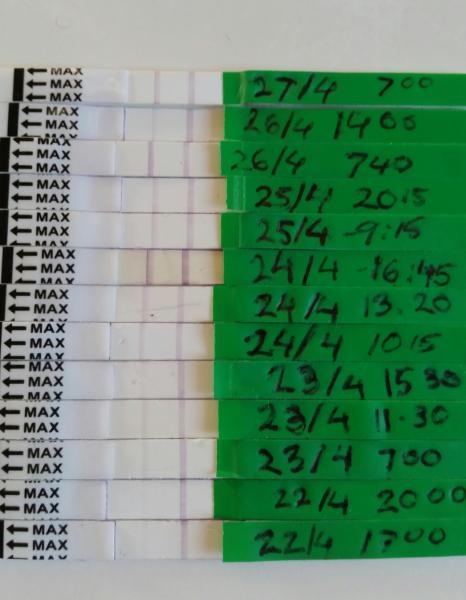 MAX
MAX 27/4 7⁰⁰
MAX
MAX
MAX 26/4 14 00
MAX
MAX
MAX 26/4 740
MAX
MAX
MAX 25/4 20 15
MAX
MAX
MAX 25/4 -9:15
MAX
MAX
MAX 24/4 -16:45
MAX
MAX
MAX 24/4 13.20
MAX
MAX
MAX 24/4 10 15
MAX
MAX
MAX 23/4 15 30
MAX
MAX
MAX 23/4 11.30
MAX
MAX
MAX 23/4 700
MAX
MAX
MAX 22/4 20 00
MAX
MAX
MAX 22/4 1700
MAX